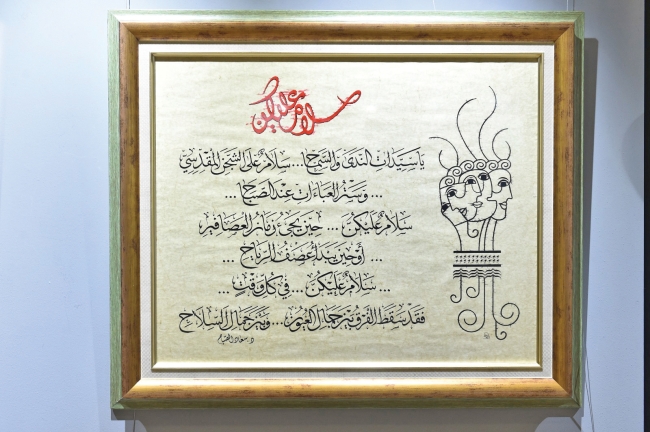 سلام عليكن
يا سيدات الندى والسماح... سلامٌ على الشجن المقدسي
... وستر العباءات عند الصباح ...
سلام عليكن ... حين يجيء زمان العصافير
... أو حين يبدأ عصف الرياح ...
... سلامٌ عليكن ... في كل وقتٍ ...
فقد يسقط الفرق بين جمال العيون... وبين جمال السلاح
د. سعاد الصباح